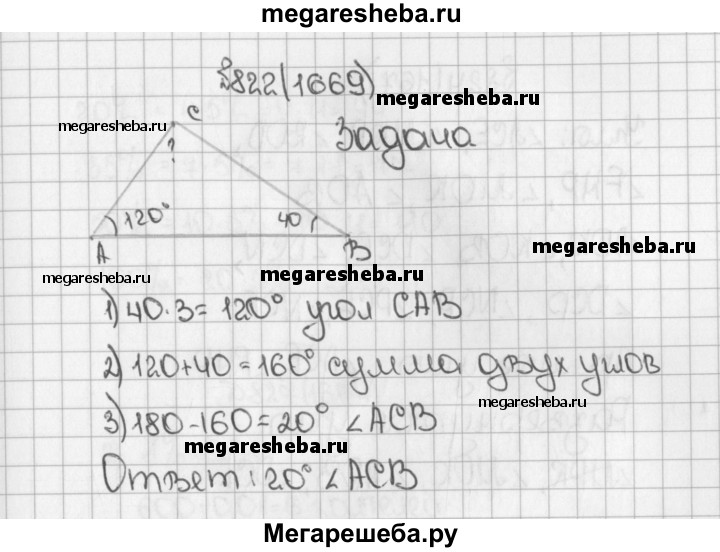 megaresheba.ru
№822(1669)
megaresheba.ru
C
megaresheba.ru
Задача
?
120°
40
A
B
megaresheba.ru
megaresheba.ru
megaresheba.ru
1) 40·3=120° угол CAB
2) 120+40=160° сумма двух углов
3) 180-160=20° ∠ACB
megaresheba.ru
megaresheba.ru
Ответ: 20° ∠ACB
Мегарешеба.ру